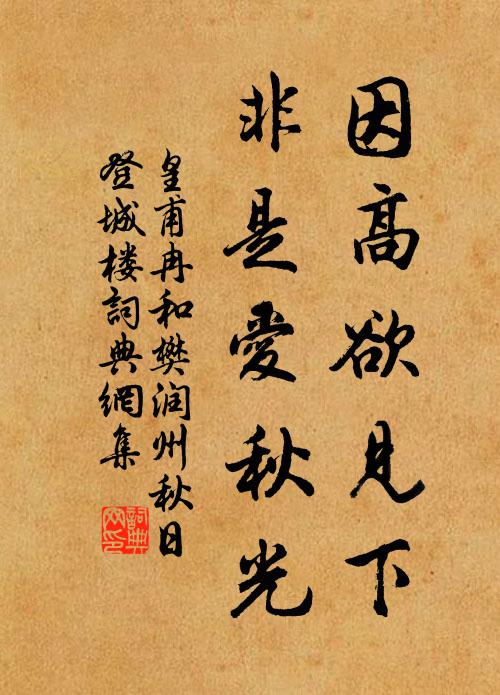 因高欲見下
非是愛秋光
皇甫冉和樊润州秋日
登城楼詞典網集
詞典網印